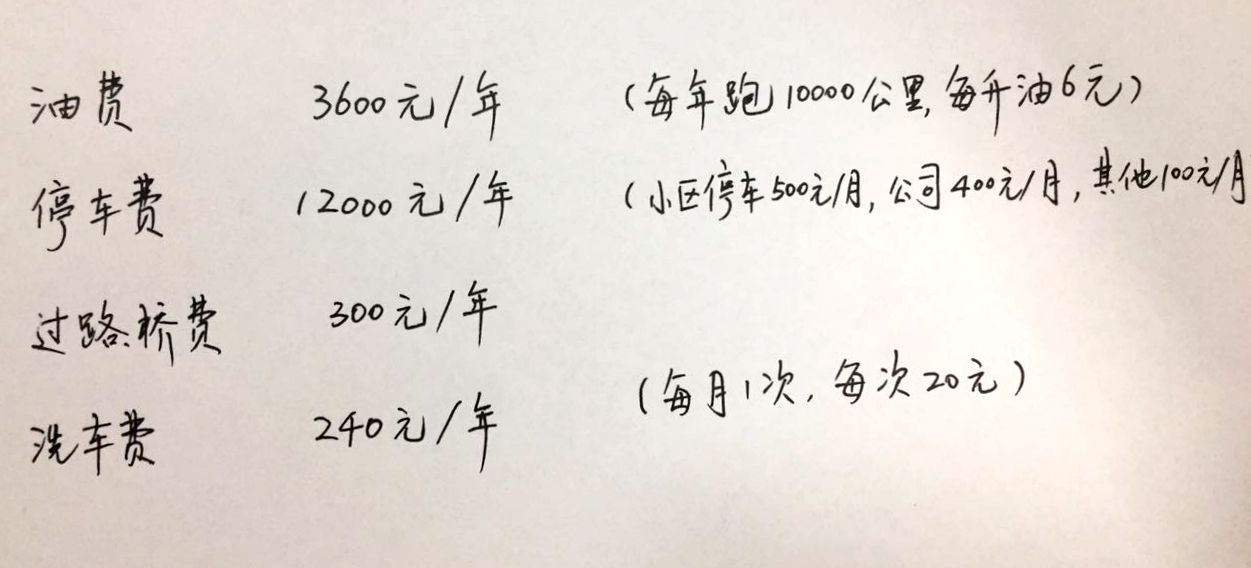 油费 3600元/年 (每年跑10000公里,每升油6元)
停车费 12000元/年 (小区停车500元/月,公司400元/月,其他100元/月
过路.桥费 300元/年
洗车费 240元/年 (每月1次,每次20元)